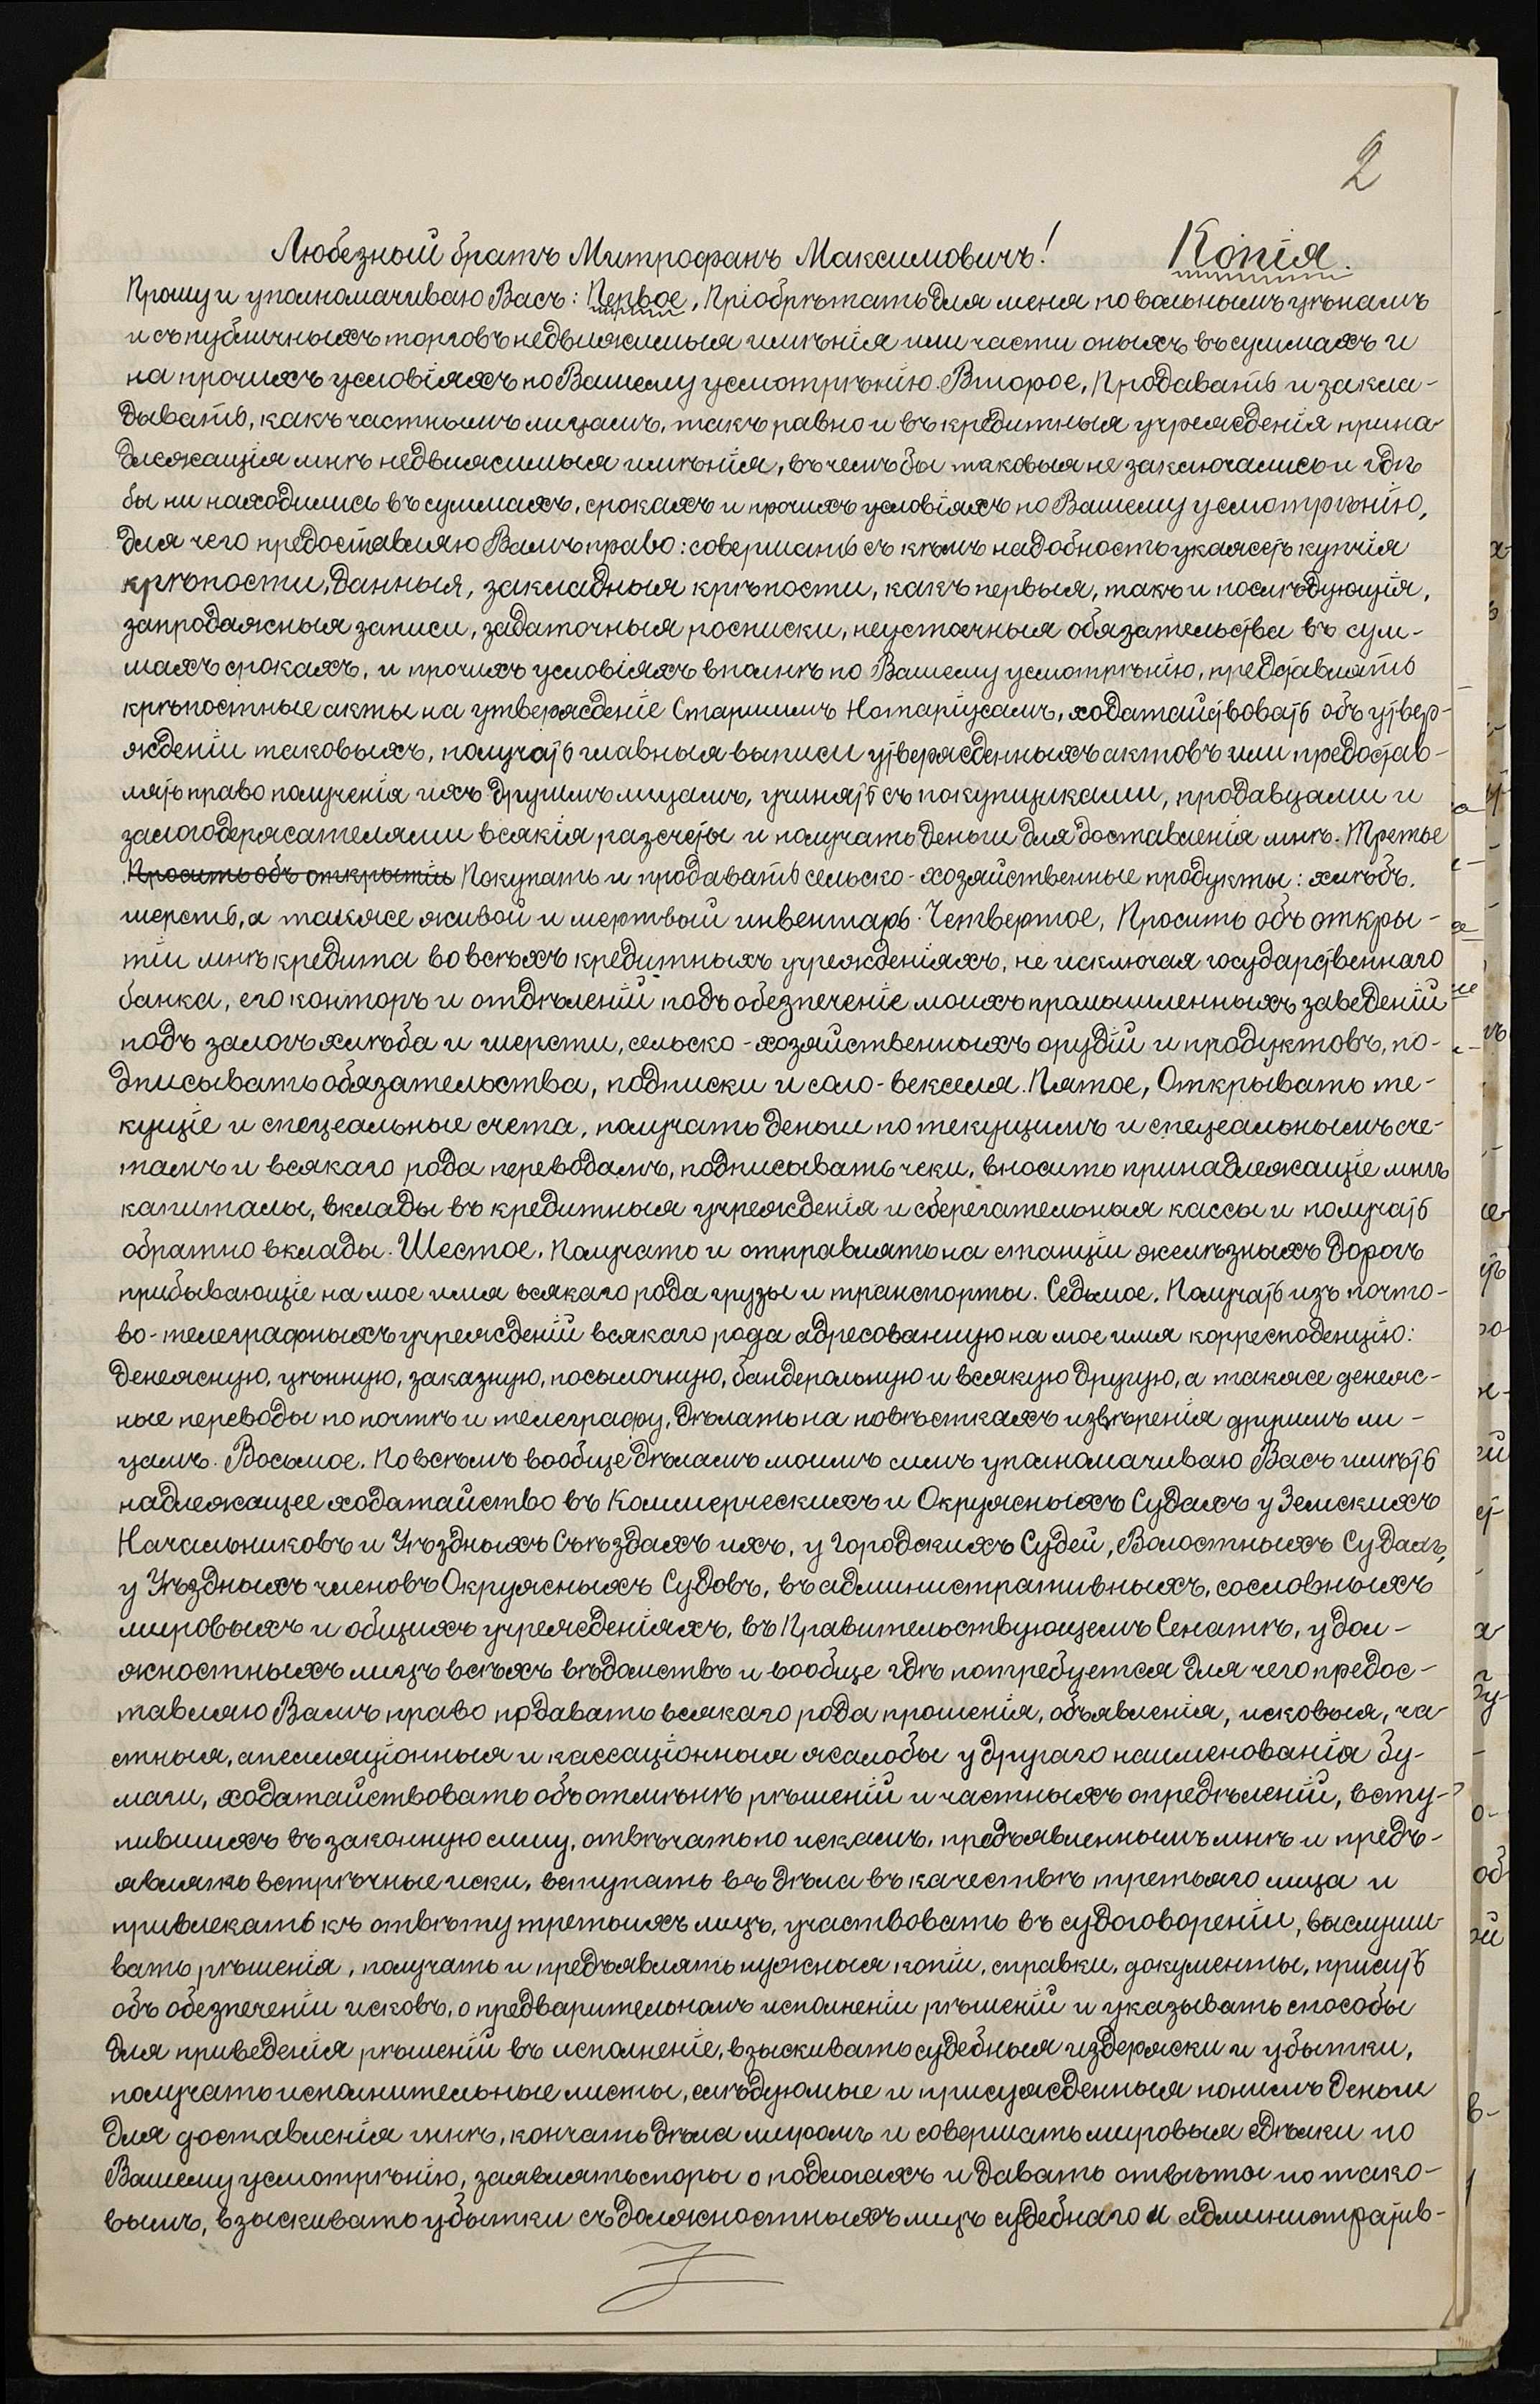 2
Любезный братъ Митрофанъ Максимовичъ! Копія.
Прошу и уполномачиваю Васъ: Первое, Пріобрѣтать для меня по вольнымъ цѣнамъ
и съ публичныхъ торговъ недвижимыя имѣнія или части оныхъ въ суммахъ и
на прочихъ условіяхъ по Вашему усмотрѣнію. Второе, Продавать и закла-
дывать, какъ частнымъ лицамъ, такъ равно и въ кредитныя учрежденія прина-
длежащія мнѣ недвижимыя имѣнія, въ чемъ бы таковыя не заключались и гдѣ
бы ни находились въ суммахъ, срокахъ и прочихъ условіяхъ по Вашему усмотрѣнію,
для чего предоставляю Вамъ право: совершать съ кѣмъ надобность укажетъ купчія
крѣпости, данныя, закладныя крѣпости, какъ первыя, такъ и послѣдующія,
запродажныя записи, задаточныя росписки, неустоечныя обязательства въ сум-
махъ срокахъ, и прочихъ условіяхъ вполнѣ по Вашему усмотрѣнію, представлять
крѣпостные акты на утвержденіе Старшимъ Нотаріусамъ, ходатайствовать объ утвер-
жденіи таковыхъ, получать главныя выписи утвержденныхъ актовъ или предостав-
лять право полученія ихъ другимъ лицамъ, учинять съ покупщиками, продавцами и
залогодержателями всякія разсчеты и получать деньги для доставленія мнѣ. Третье
Просить объ открытіи Покупать и продавать сельско-хозяйственные продукты: хлѣбъ,
шерсть, а также живой и мертвый инвентарь. Четвертое, Просить объ откры-
тіи мнѣ кредита во всѣхъ кредитныхъ учрежденіяхъ, не исключая государственнаго
банка, его конторъ и отдѣленій подъ обезпеченіе моихъ промышленныхъ заведеній
подъ залогъ хлѣба и шерсти, сельско-хозяйственныхъ орудій и продуктовъ, по-
дписывать обязательства, подписки и соло-векселя. Пятое, Открывать те-
кущіе и спецеальные счета, получать деньги по текущимъ и спецеальнымъ сче-
тамъ и всякаго рода переводамъ, подписывать чеки, вносить принадлежащіе мнѣ
капиталы, вклады въ кредитныя учрежденія и сберегательныя кассы и получать
обратно вклады. Шестое, Получать и отправлять на станціи желѣзныхъ дорогъ
прибывающіе на мое имя всякаго рода грузы и транспорты. Седьмое, Получать изъ почто-
во-телеграфныхъ учрежденій всякаго рода адресованную на мое имя корресподенцію:
денежную, цѣнную, заказную, посылочную, бандерольную и всякую другую, а также денеж-
ные переводы по почтѣ и телеграфу, дѣлать на повѣсткахъ извѣренія другимъ ли-
цамъ. Восьмое, По всѣмъ вообще дѣламъ моимъ симъ уполномачиваю Васъ имѣть
надлежащее ходатайство въ Коммерческихъ и Окружныхъ Судахъ у Земскихъ
Начальниковъ и Уѣздныхъ Съѣздахъ ихъ, у Городскихъ Судей, Волостныхъ Судахъ,
у Уѣздныхъ членовъ Окружныхъ Судовъ, въ административныхъ, сословныхъ
мировыхъ и общихъ учрежденіяхъ, въ Правительствующемъ Сенатѣ, у дол-
жностныхъ лицъ всѣхъ вѣдомствъ и вообще гдѣ потребуется для чего предос-
тавляю Вамъ право подавать всякаго рода прошенія, объявленія, исковыя, ча-
стныя, апелляціонныя и кассаціонныя жалобы у другаго наименованія бу-
маги, ходатайствовать объ отмѣнѣ рѣшеній и частныхъ опредѣленій, всту-
пившихъ въ законную силу, отвѣчать по искамъ, предъявленнымъ мнѣ и предъ-
являть встрѣчные иски, вступать въ дѣла въ качествѣ третьяго лица и
привлекать къ отвѣту третьихъ лицъ, участвовать въ судоговореніи, выслуши-
вать рѣшенія, получать и предъявлять нужныя копіи, справки, документы, присить
объ обезпеченіи исковъ, о предварительномъ исполненіи рѣшеній и указывать способы
для приведенія рѣшеній въ исполненіе, взыскивать судебныя издержски и убытки,
получать исполнительные листы, слѣдуюмые и присужденныя по нимъ деньги
для доставленія мнѣ, кончать дѣла миромъ и совершать мировыя сдѣлки по
Вашему усмотрѣнію, заявлять споры о подлогахъ и давать отвѣты по тако-
вымъ, взыскивать убытки съ должностныхъ лицъ судебнаго и административ-